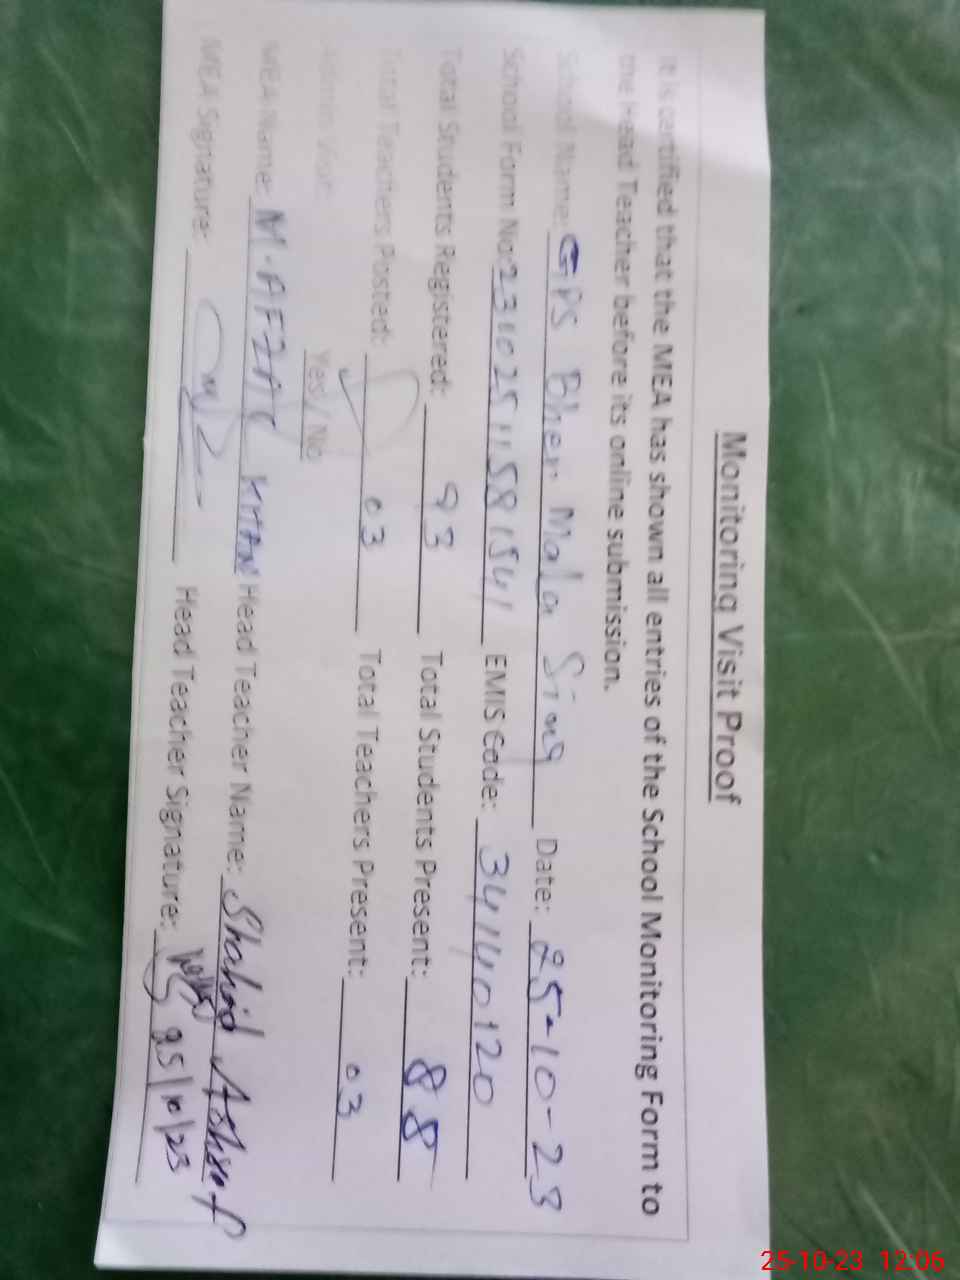 Monitoring Visit Proof
It is certified that the MEA has shown all entries of the School Monitoring Form to
the Head Teacher before its online submission.
School Name: GPS Bher Mala Sing Date: 25-10-23
School Form No: 23102511581541 EMIS Code: 34140120
Total Students Registered: 93 Total Students Present: 88
Total Teachers Posted: 03 Total Teachers Present: 03
Admin Visit: Yes / No
MEA Name: M.AFZAL KHAN Head Teacher Name: Shahid Ashraf
MEA Signature: Head Teacher Signature: 25/10/23
25-10-23 12:06